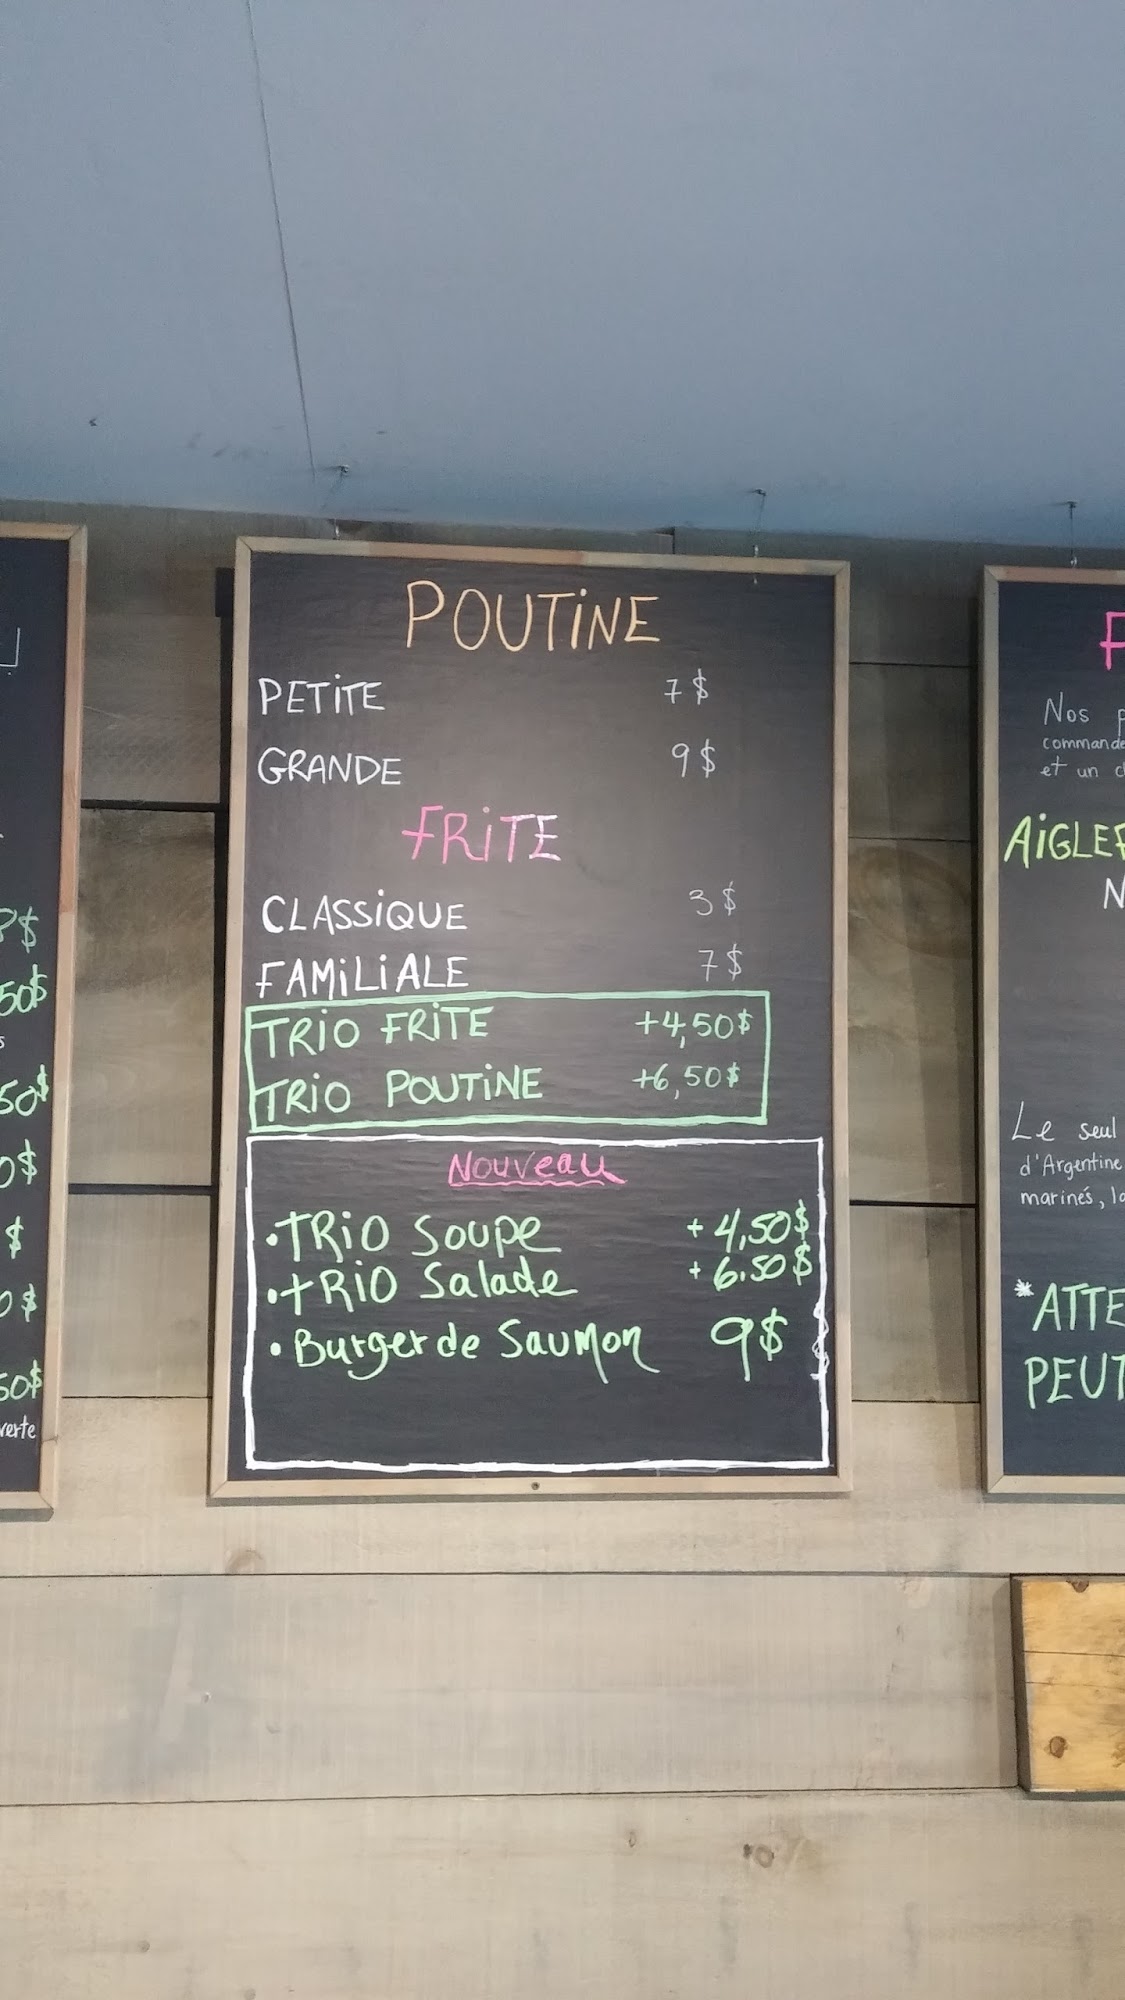 POUTINE
PETITE 7$
GRANDE 9$
FRITE
CLASSIQUE 3$
FAMILIALE 7$
TRIO FRITE +4,50$
TRIO POUTINE +6,50$
Nouveau
• TRIO Soupe + 4,50$
• TRIO Salade + 6.50$
• Burger de Saumon 9$
50$
50$
$
50$
verte
Nos
commande
et un
AIGLEF
N
Le seul
d'Argentine
marinés,
* ATTE
PEUT